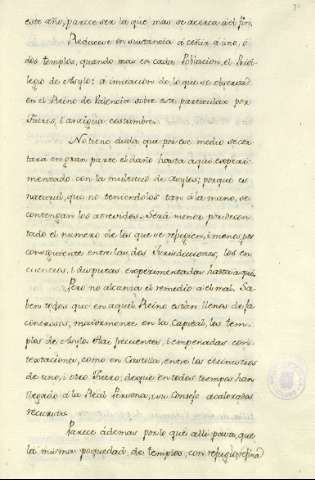 este año, parece ser la que mas se acerca a el fin.
Reducese en sustancia a ceñir a uno, o
dos templos, quando mas en cada Poblacion, el Privi-
legio de Asylo: a imitacion de lo que se observa
en el Reino de Valencia sobre este particular por
Fueros, i antigua costumbre.
No tiene duda que por ese medio se cor-
tará en gran parte el daño hasta aqui experi-
mentado con la multitud de Asylos; porque es
natural, que no teniendolos tan a la mano, se
contengan los atrevidos. Será menor por decon-
tado el numero de los que se refugien, i menos por
consiguiente entre las dos Jurisdicciones, los en-
cuentros, i disputas experimentadas hasta aqui.
Pero no alcanza el remedio a el mal. Sa-
ben todos que en aquel Reino están llenos de fa-
cinerosos, maiormente en la Capital, los tem-
plos de Asylo. Hai frecuentes, i empeñadas con-
textaciones, como en Castilla, entre los
de uno, i otro Fuero; de que en todos tiempos han
llegado a la Real Persona, i su Consejo acalorados
recursos.
Parece ademas por lo que alli pasa, que
la misma poquedad de templos, con